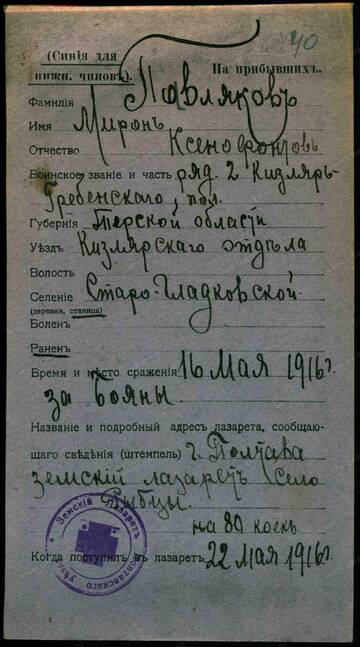 40
(Синія для
нижн. чиновъ).
На прибывшихъ.
Фамилія Павляковъ
Имя Миронъ
Отчество Ксенофонтовъ
Воинское званіе и часть ряд. 2 Кизляръ-
Гребенскаго, пол.
Губернія Терской области
Уѣздъ Кизлярскаго отдѣла
Волость
Селеніе Старо-Гладковской
(деревня, станица)
Боленъ
Раненъ
Время и мѣсто сраженія 16 Мая 1916 г.
за Бояны
Названіе и подробный адресъ лазарета, сообщаю-
щаго свѣдѣнія (штемпель) г. Полтава
земскій лазаретъ Село
Рыбцы
на 80 коекъ
Когда поступилъ въ лазаретъ 22 мая 1916 г.
Земскій Лазаретъ
Полтавскаго Уѣзда